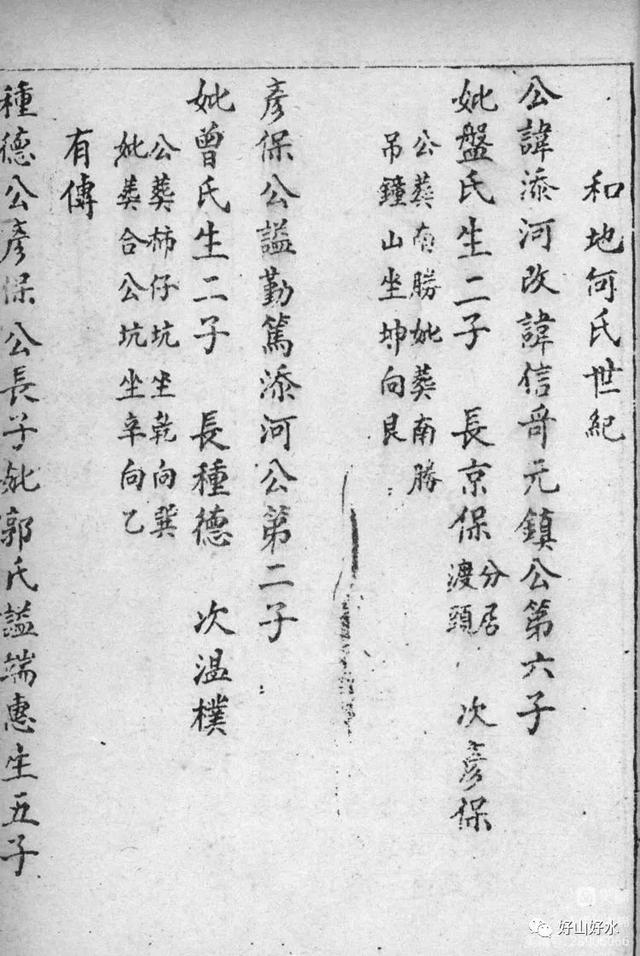 和地何氏世紀
公諱添河改諱信哥元鎮公第六子
妣盤氏生二子 長京保分居渡頭 次彥保
公葬南勝妣葬南勝
吊鐘山坐坤向艮
彥保公謚勤篤添河公第二子
妣曾氏生二子 長種德 次溫樸
公葬柿仔坑坐乾向巽
妣葬合公坑坐辛向乙
有傳
種德公彥保公長子妣郭氏謚端惠生五子
好山好水